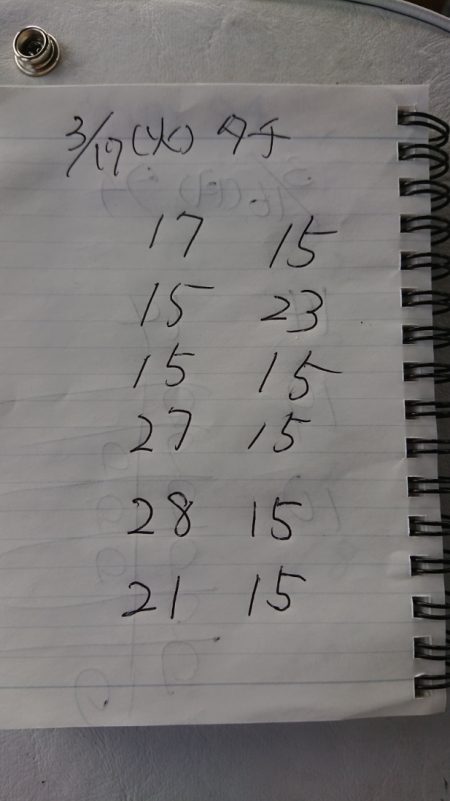 3/17(火) タチ
17 15
15 23
15 15
27 15
28 15
21 15